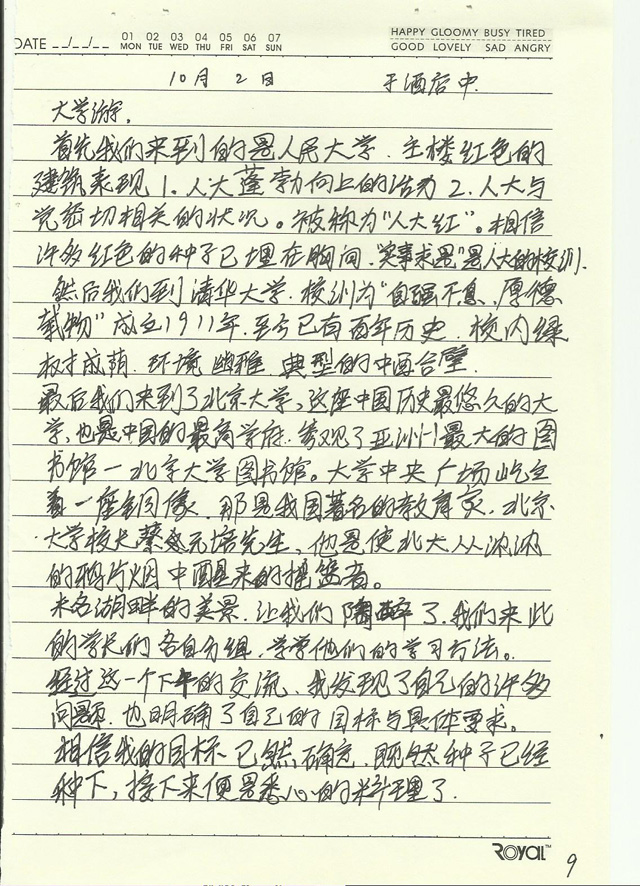 DATE __/__/__ 01 02 03 04 05 06 07 HAPPY GLOOMY BUSY TIRED
MON TUE WED THU FRI SAT SUN GOOD LOVELY SAD ANGRY
10月 2日 于酒店中.
大学游,
首先我们来到的是人民大学. 主楼红色的
建筑表现 1. 人大蓬勃向上的活力 2. 人大与
党密切相关的状况。被称为“人大红”。相信
许多红色的种子已埋在胸间. “实事求是”是人大的校训.
然后我们到清华大学. 校训为“自强不息, 厚德
载物” 成立1911年. 至今已有百年历史. 校内绿
树成荫. 环境幽雅 典型的中西合璧.
最后我们来到了北京大学, 这座中国历史最悠久的大
学, 也是中国的最高学府. 参观了亚洲最大的图
书馆—北京大学图书馆。大学中央广场屹立
着一座铜像. 那是我国著名的教育家. 北京
大学校长蔡元培先生, 他是使北大从浓浓
的鸦片烟中醒来的摇篮者。
未名湖畔的美景. 让我们陶醉了. 我们来此
的学长们 各自分组. 学学他们的学习方法。
经过这一个下午的交流. 我发现了自己的许多
问题. 也明确了自己的目标与具体要求。
相信我的目标已然确定. 既然种子已经
种下, 接下来便是悉心的料理了.
ROYAL™
9